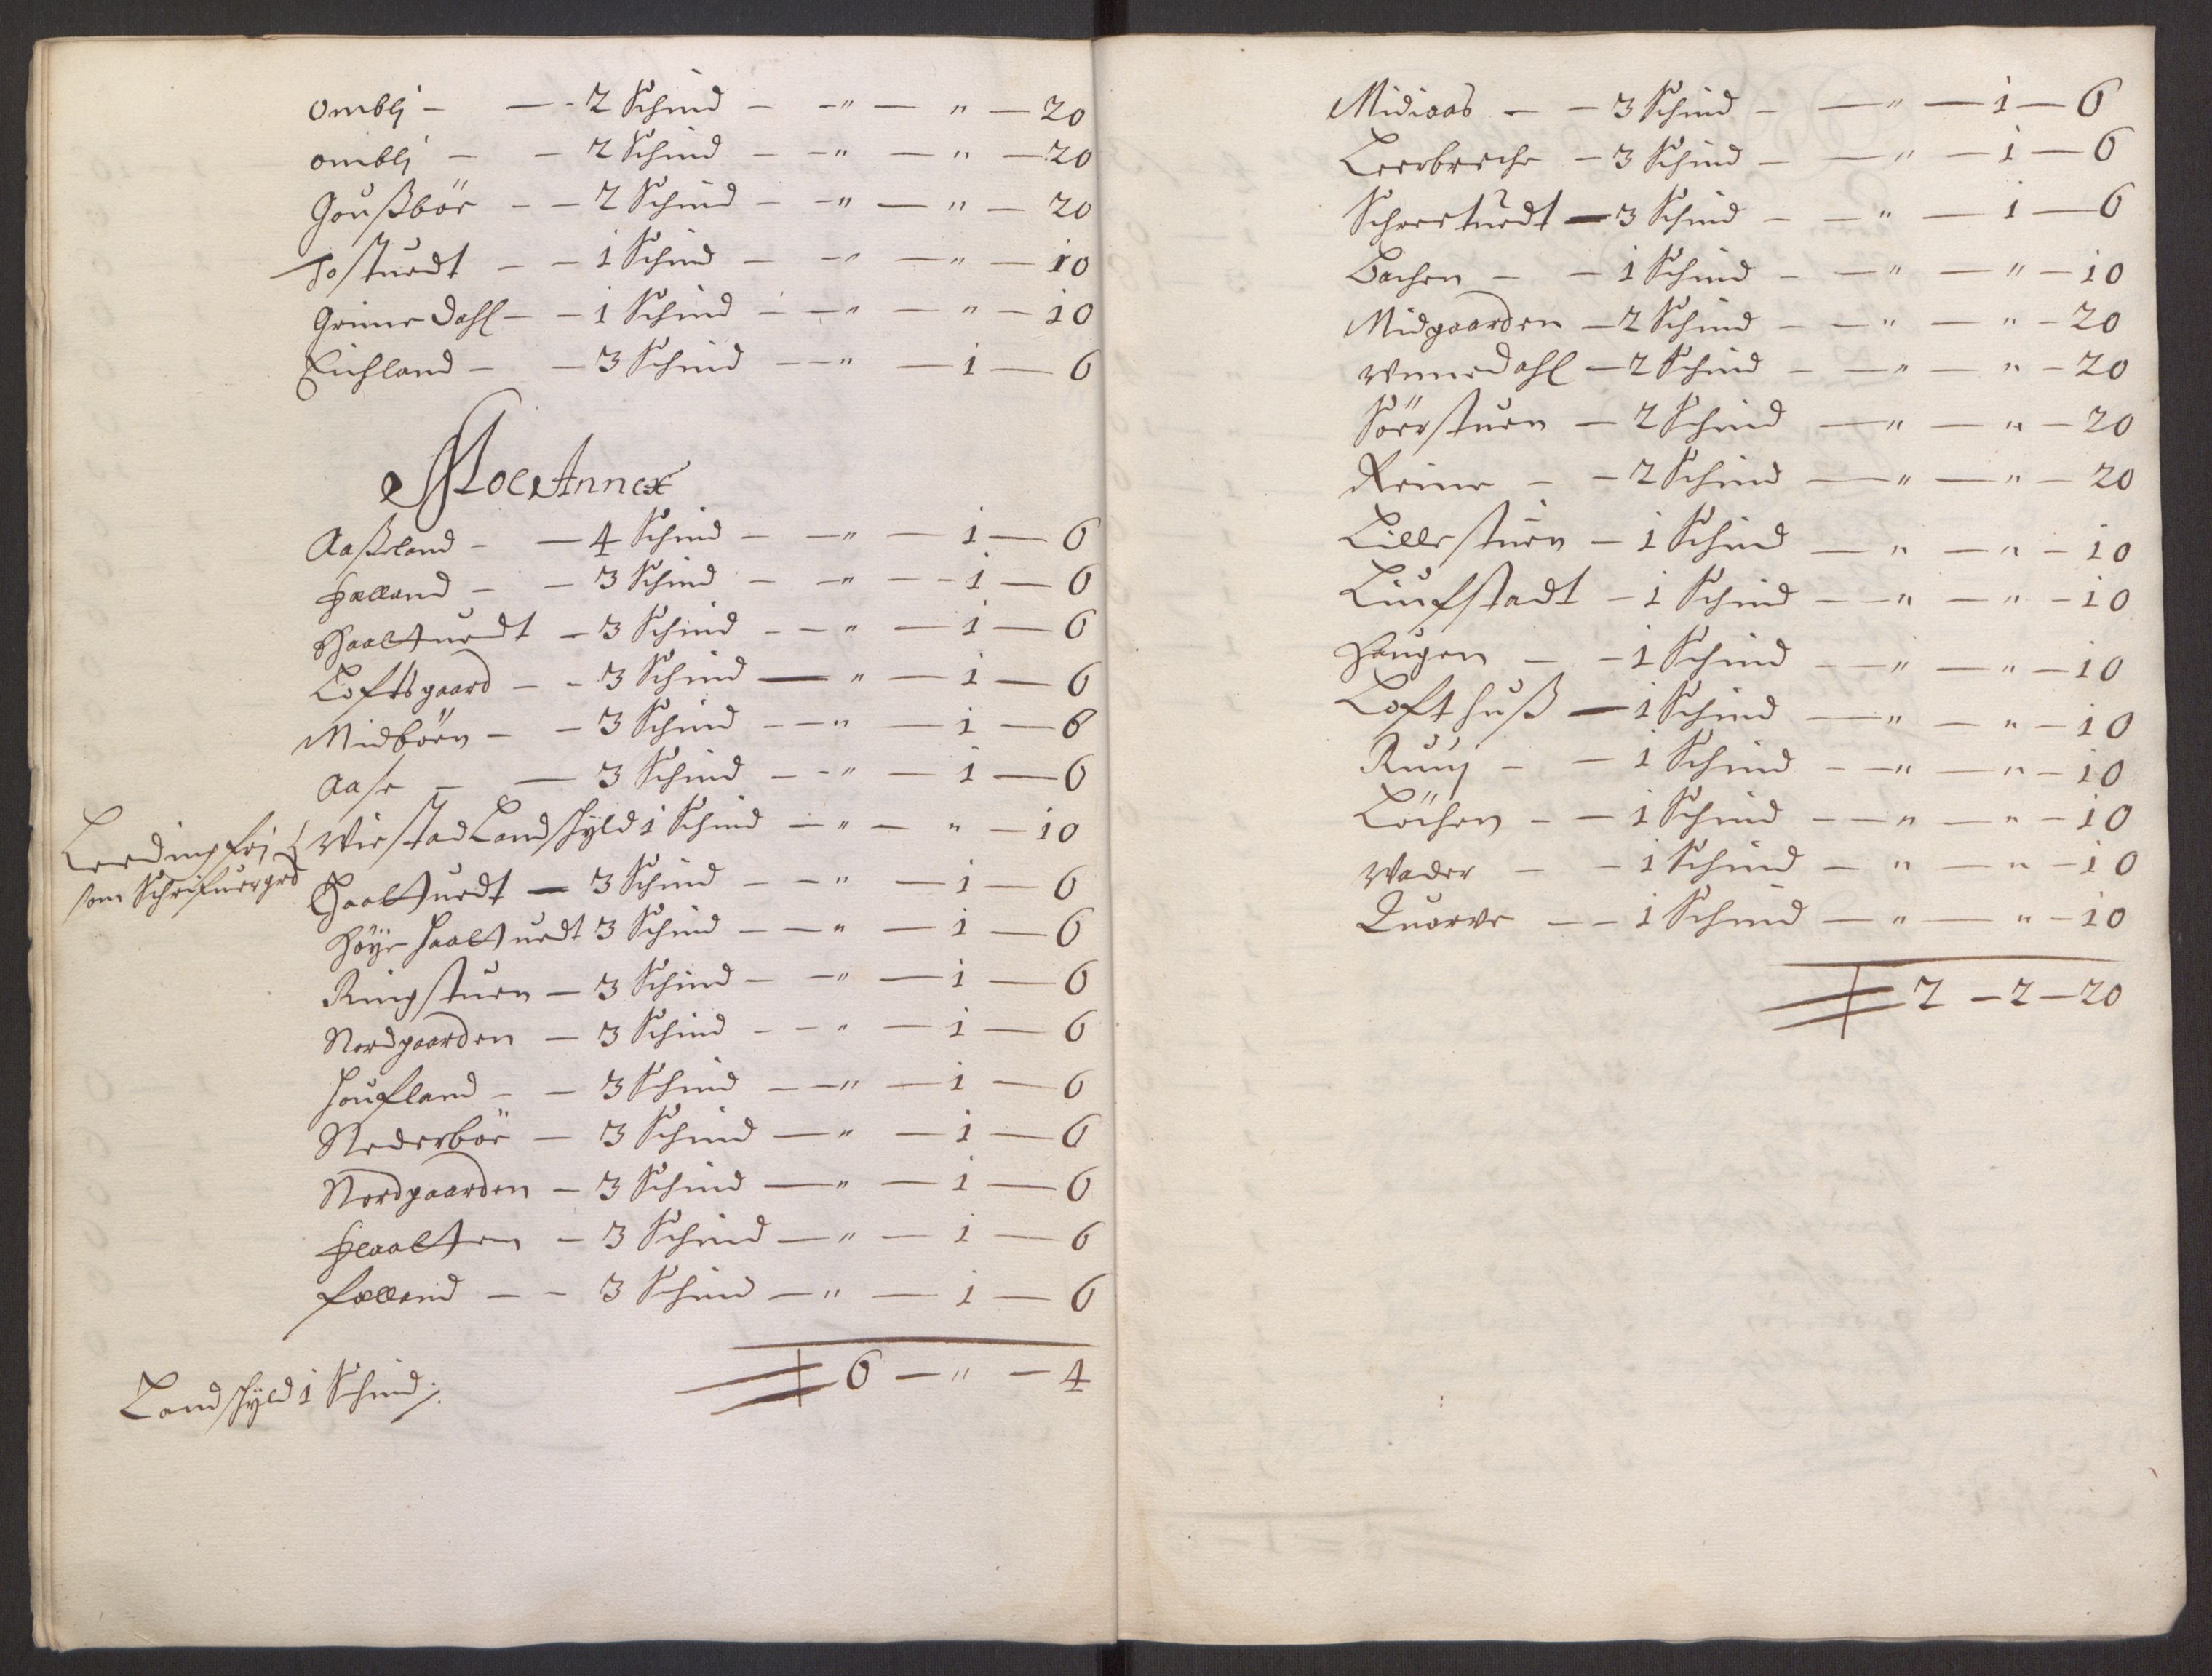 ombli - - 2 Schind - - " - " - 20
ombli - - 2 Schind - - " - " - 20
Goußböe - - 2 Schind - - " - " - 20
Tostuedt - - 1 Schind - - " - " - 10
Grimedahl - - 1 Schind - - " - " - 10
Eichland - - 3 Schind - - " - 1 - 6
Moe Annex
Aaßland - - 4 Schind - - " - 1 - 6
Hælland - - 3 Schind - - " - 1 - 6
Haaltuedt - 3 Schind - - " - 1 - 6
Loftsgaard - - 3 Schind - " - 1 - 6
Midböen - - 3 Schind - - " - 1 - 6
Aase - - 3 Schind - - " - 1 - 6
Leeding fri
som Schrifuergrd
Wiestad Landschyld 1 Schind - " - " - 10
Haaltuedt - 3 Schind - - " - 1 - 6
Höye Haaltuedt 3 Schind - - " - 1 - 6
Ringstuen - 3 Schind - - " - 1 - 6
Nordgaarden - 3 Schind - - " - 1 - 6
Houfland - - 3 Schind - - " - 1 - 6
Nederböe - 3 Schind - " - 1 - 6
Nordgaarden - 3 Schind - " - 1 - 6
Flaalten - 3 Schind - " - 1 - 6
fælland - - 3 Schind - " - 1 - 6
6 - " - 4
Landschyld 1 Schind
Midiaas - - 3 Schind - - " - 1 - 6
Leerbreche - 3 Schind - - " - 1 - 6
Schreetuedt - 3 Schind - - " - 1 - 6
Bachen - - 1 Schind - - " - " - 10
Midgaarden - 2 Schind - - " - " - 20
Winnedahl - 2 Schind - - " - " - 20
Söerstuen - 2 Schind - " - " - 20
Reime - - 2 Schind - " - " - 20
Lillestuen - 1 Schind - " - " - 10
Liufstadt - 1 Schind - - " - " - 10
Haugen - - 1 Schind - - " - " - 10
Lofthuß - 1 Schind - " - " - 10
Ruuj - - 1 Schind - - " - " - 10
Löchen - - 1 Schind - - " - " - 10
Wader - - 1 Schind - " - " - 10
Quarve - - 1 Schind - " - " - 10
2 - 2 - 20